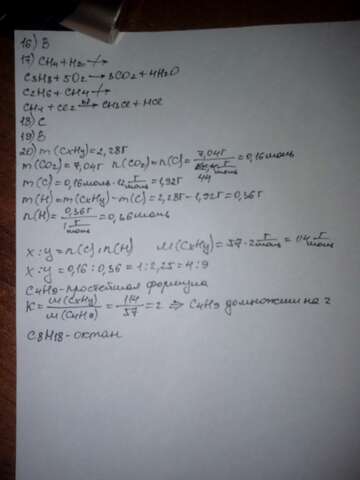 16) В
17) CH4 + H2 -/->
C3H8 + 5O2 → 3CO2 + 4H2O
C2H6 + CH4 -/->
CH4 + Cl2 → CH3Cl + HCl
18) С
19) В
20) m(CxHy) = 2,28г
m(CO2) = 7,04г n(CO2) = n(C) = 7,04г / 44 г/моль = 0,16моль
m(C) = 0,16моль · 12 г/моль = 1,92г
m(H) = m(CxHy) - m(C) = 2,28г - 1,92г = 0,36г
n(H) = 0,36г / 1 г/моль = 0,36моль
x : y = n(C) : n(H) M(CxHy) = 57 · 2 г/моль = 114 г/моль
x : y = 0,16 : 0,36 = 1 : 2,25 = 4 : 9
C4H9 - простейшая формула
K = M(CxHy) / M(C4H9) = 114 / 57 = 2 ⇒ C4H9 домножим на 2
C8H18 - октан